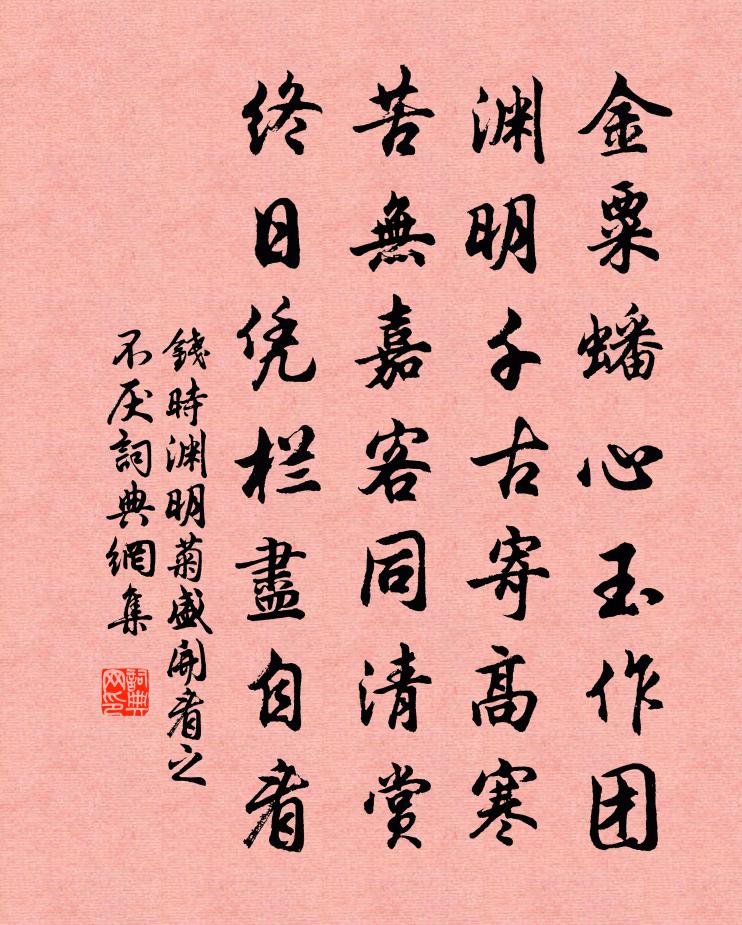 金粟蟠心玉作团
渊明千古寄高寒
苦無嘉客同清赏
终日凭栏盡自看
錢時渊明菊盛開看之
不厌詞典網集
詞典网印